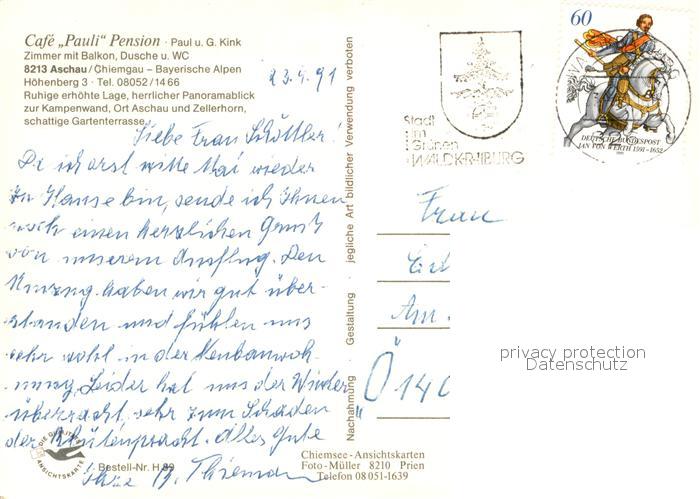 Café „Pauli" Pension · Paul u. G. Kink
Zimmer mit Balkon, Dusche u. WC
8213 Aschau/Chiemgau – Bayerische Alpen
Höhenberg 3 · Tel. 08052/1466
Ruhige erhöhte Lage, herrlicher Panoramablick
zur Kampenwand, Ort Aschau und Zellerhorn,
schattige Gartenterrasse
23.4.91
Liebe Frau
Da ich erst mitte Mai wieder
zu Hause bin, sende ich Ihnen
noch einen herzlichen Gruß
von unserem Ausflug. Den
Umzug haben wir gut über-
standen und fühlen uns
sehr wohl in der Neubauwoh-
nung. Leider hat uns der Winter
überrascht, sehr zum Schaden
der Blütenpracht. Alles Gute
Ihre
DIE
ANSICHTSKARTE
Bestell-Nr. H 89
Nachahmung Gestaltung jegliche Art bildlicher Verwendung verboten
Stadt
im
Grünen
WALDKRAIBURG
60
DEUTSCHE BUNDESPOST
JAN VON WERTH 1591-1652
Frau
Am
Ö 140
privacy protection
Datenschutz
Chiemsee-Ansichtskarten
Foto-Müller 8210 Prien
Telefon 08051-1639